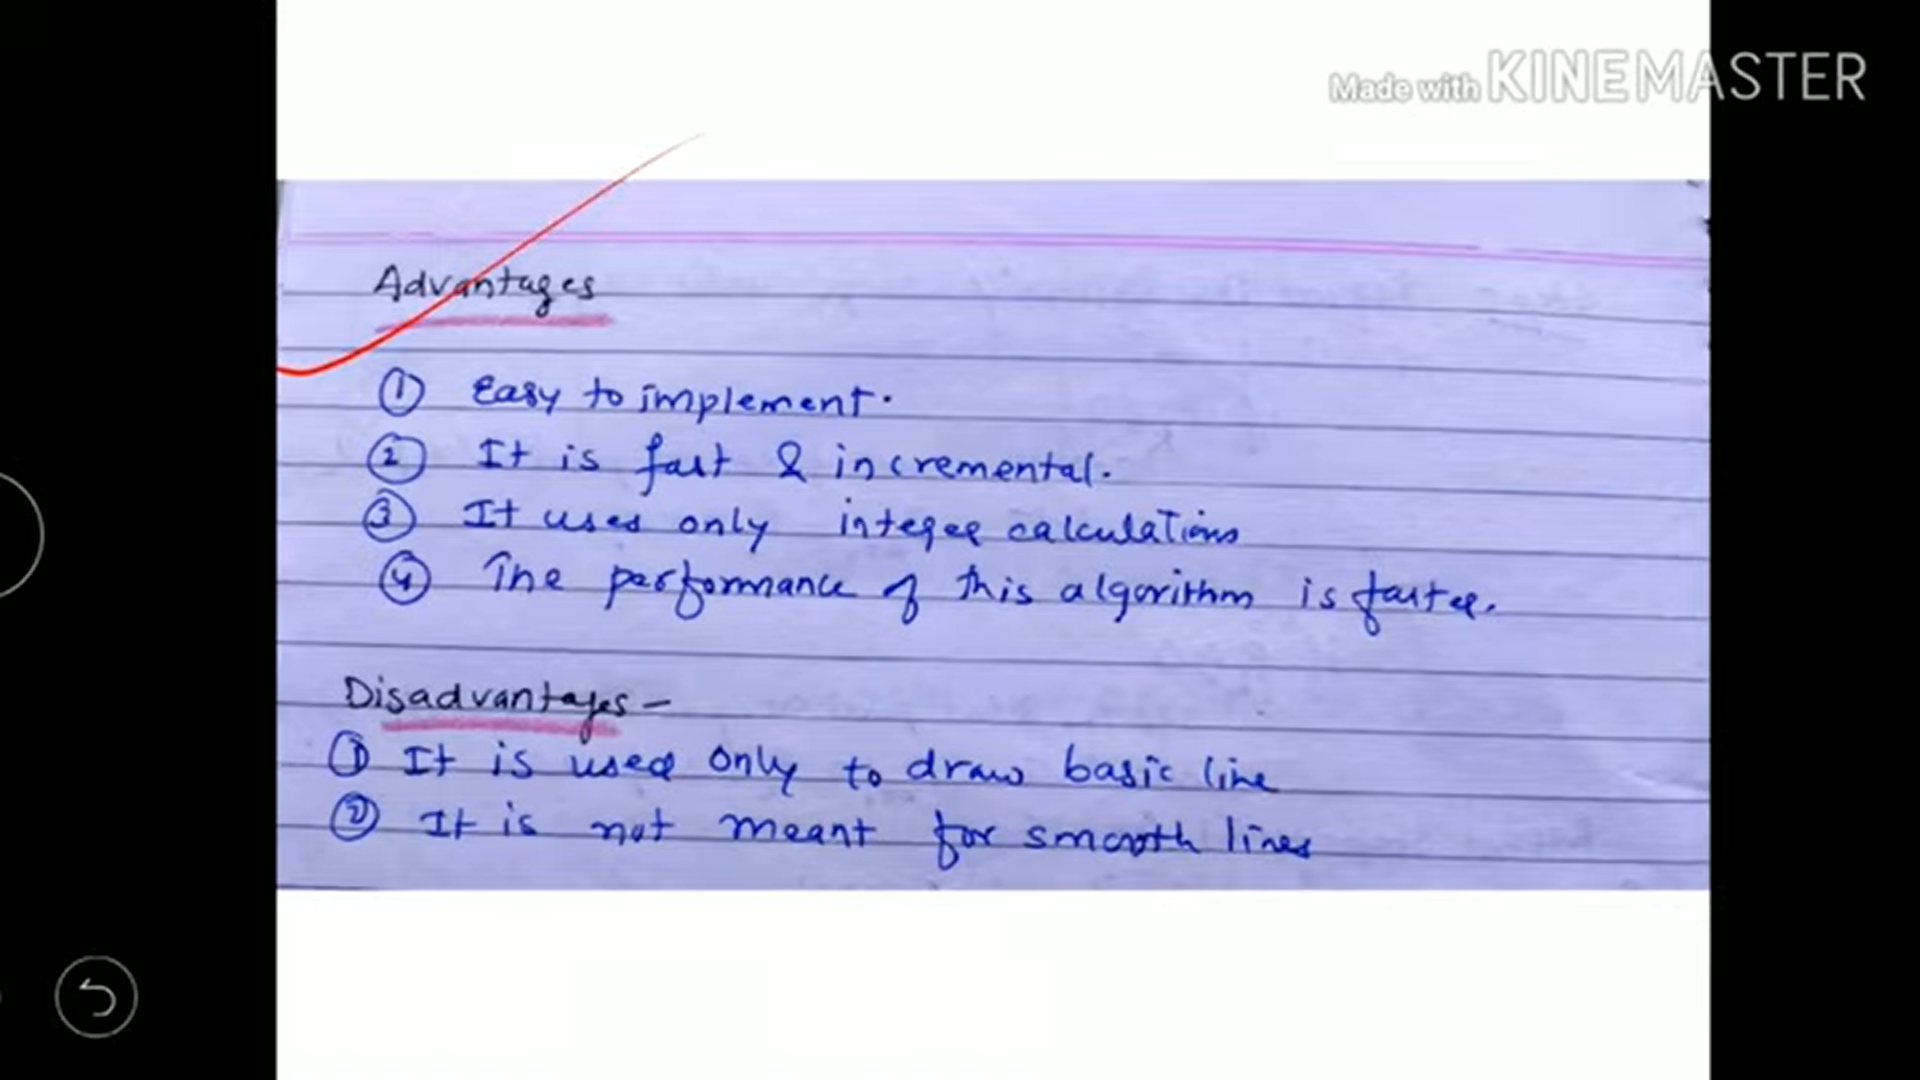 Made with KINEMASTER
Advantages
① Easy to implement.
② It is fast & incremental.
③ It uses only integer calculations
④ The performance of this algorithm is faster.
Disadvantages -
① It is used only to draw basic line
② It is not meant for smooth lines